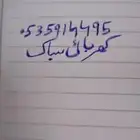 0535914495
کهربائی سباک